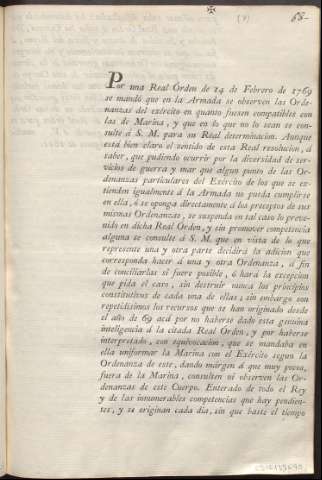 ✠
(7)
68-
Por una Real Órden de 14 de Febrero de 1769
se mandó que en la Armada se observen las Orde-
nanzas del exército en quanto fuesen compatibles con
las de Marina, y que en lo que no lo sean se con-
sulte á S. M. para su Real determinacion. Aunque
está bien claro el sentido de esta Real resolucion, á
saber, que pudiendo ocurrir por la diversidad de ser-
vicios de guerra y mar que algun punto de las Or-
denanzas particulares del Exército de los que se ex-
tienden igualmente á la Armada no pueda cumplirse
en ella, ó se oponga directamente á los preceptos de sus
mismas Ordenanzas, se suspenda en tal caso lo preve-
nido en dicha Real Orden, y sin promover competencia
alguna se consulte á S. M. que en vista de lo que
represente una y otra parte decidirá la adicion que
corresponda hacer á una y otra Ordenanza, á fin
de conciliarlas si fuere posible, ó hará la excepcion
que pida el caso, sin destruir nunca los principios
constitutivos de cada una de ellas; sin embargo son
repetidísimos los recursos que se han originado desde
el año de 69 acá por no haberse dado esta genuina
inteligencia á la citada Real Orden, y por haberse
interpretado, con equivocacion, que se mandaba en
ella uniformar la Marina con el Exército segun la
Ordenanza de este, dando márgen á que muy pocos,
fuera de la Marina, consulten ni observen las Or-
denanzas de este Cuerpo. Enterado de todo el Rey
y de las innumerables competencias que hay pendien-
tes, y se originan cada dia, sin que baste el tiempo